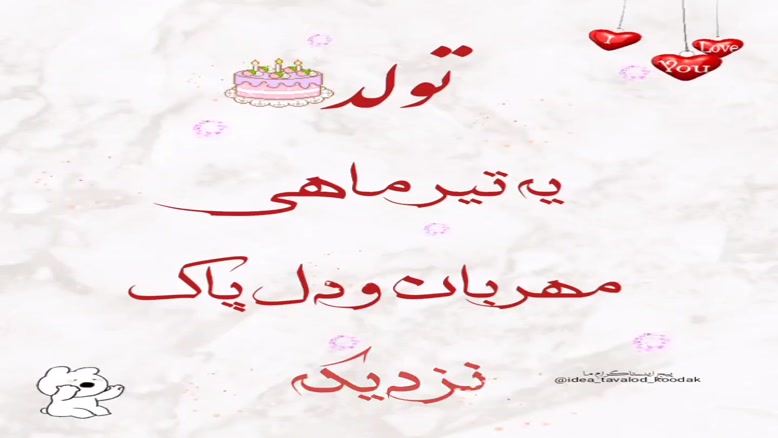 I
Love
You
تولد
یه تیر ماهی
مهربان و دل پاک
نزدیکه
پیج اینستاگرام ما
@idea_tavalod_koodak